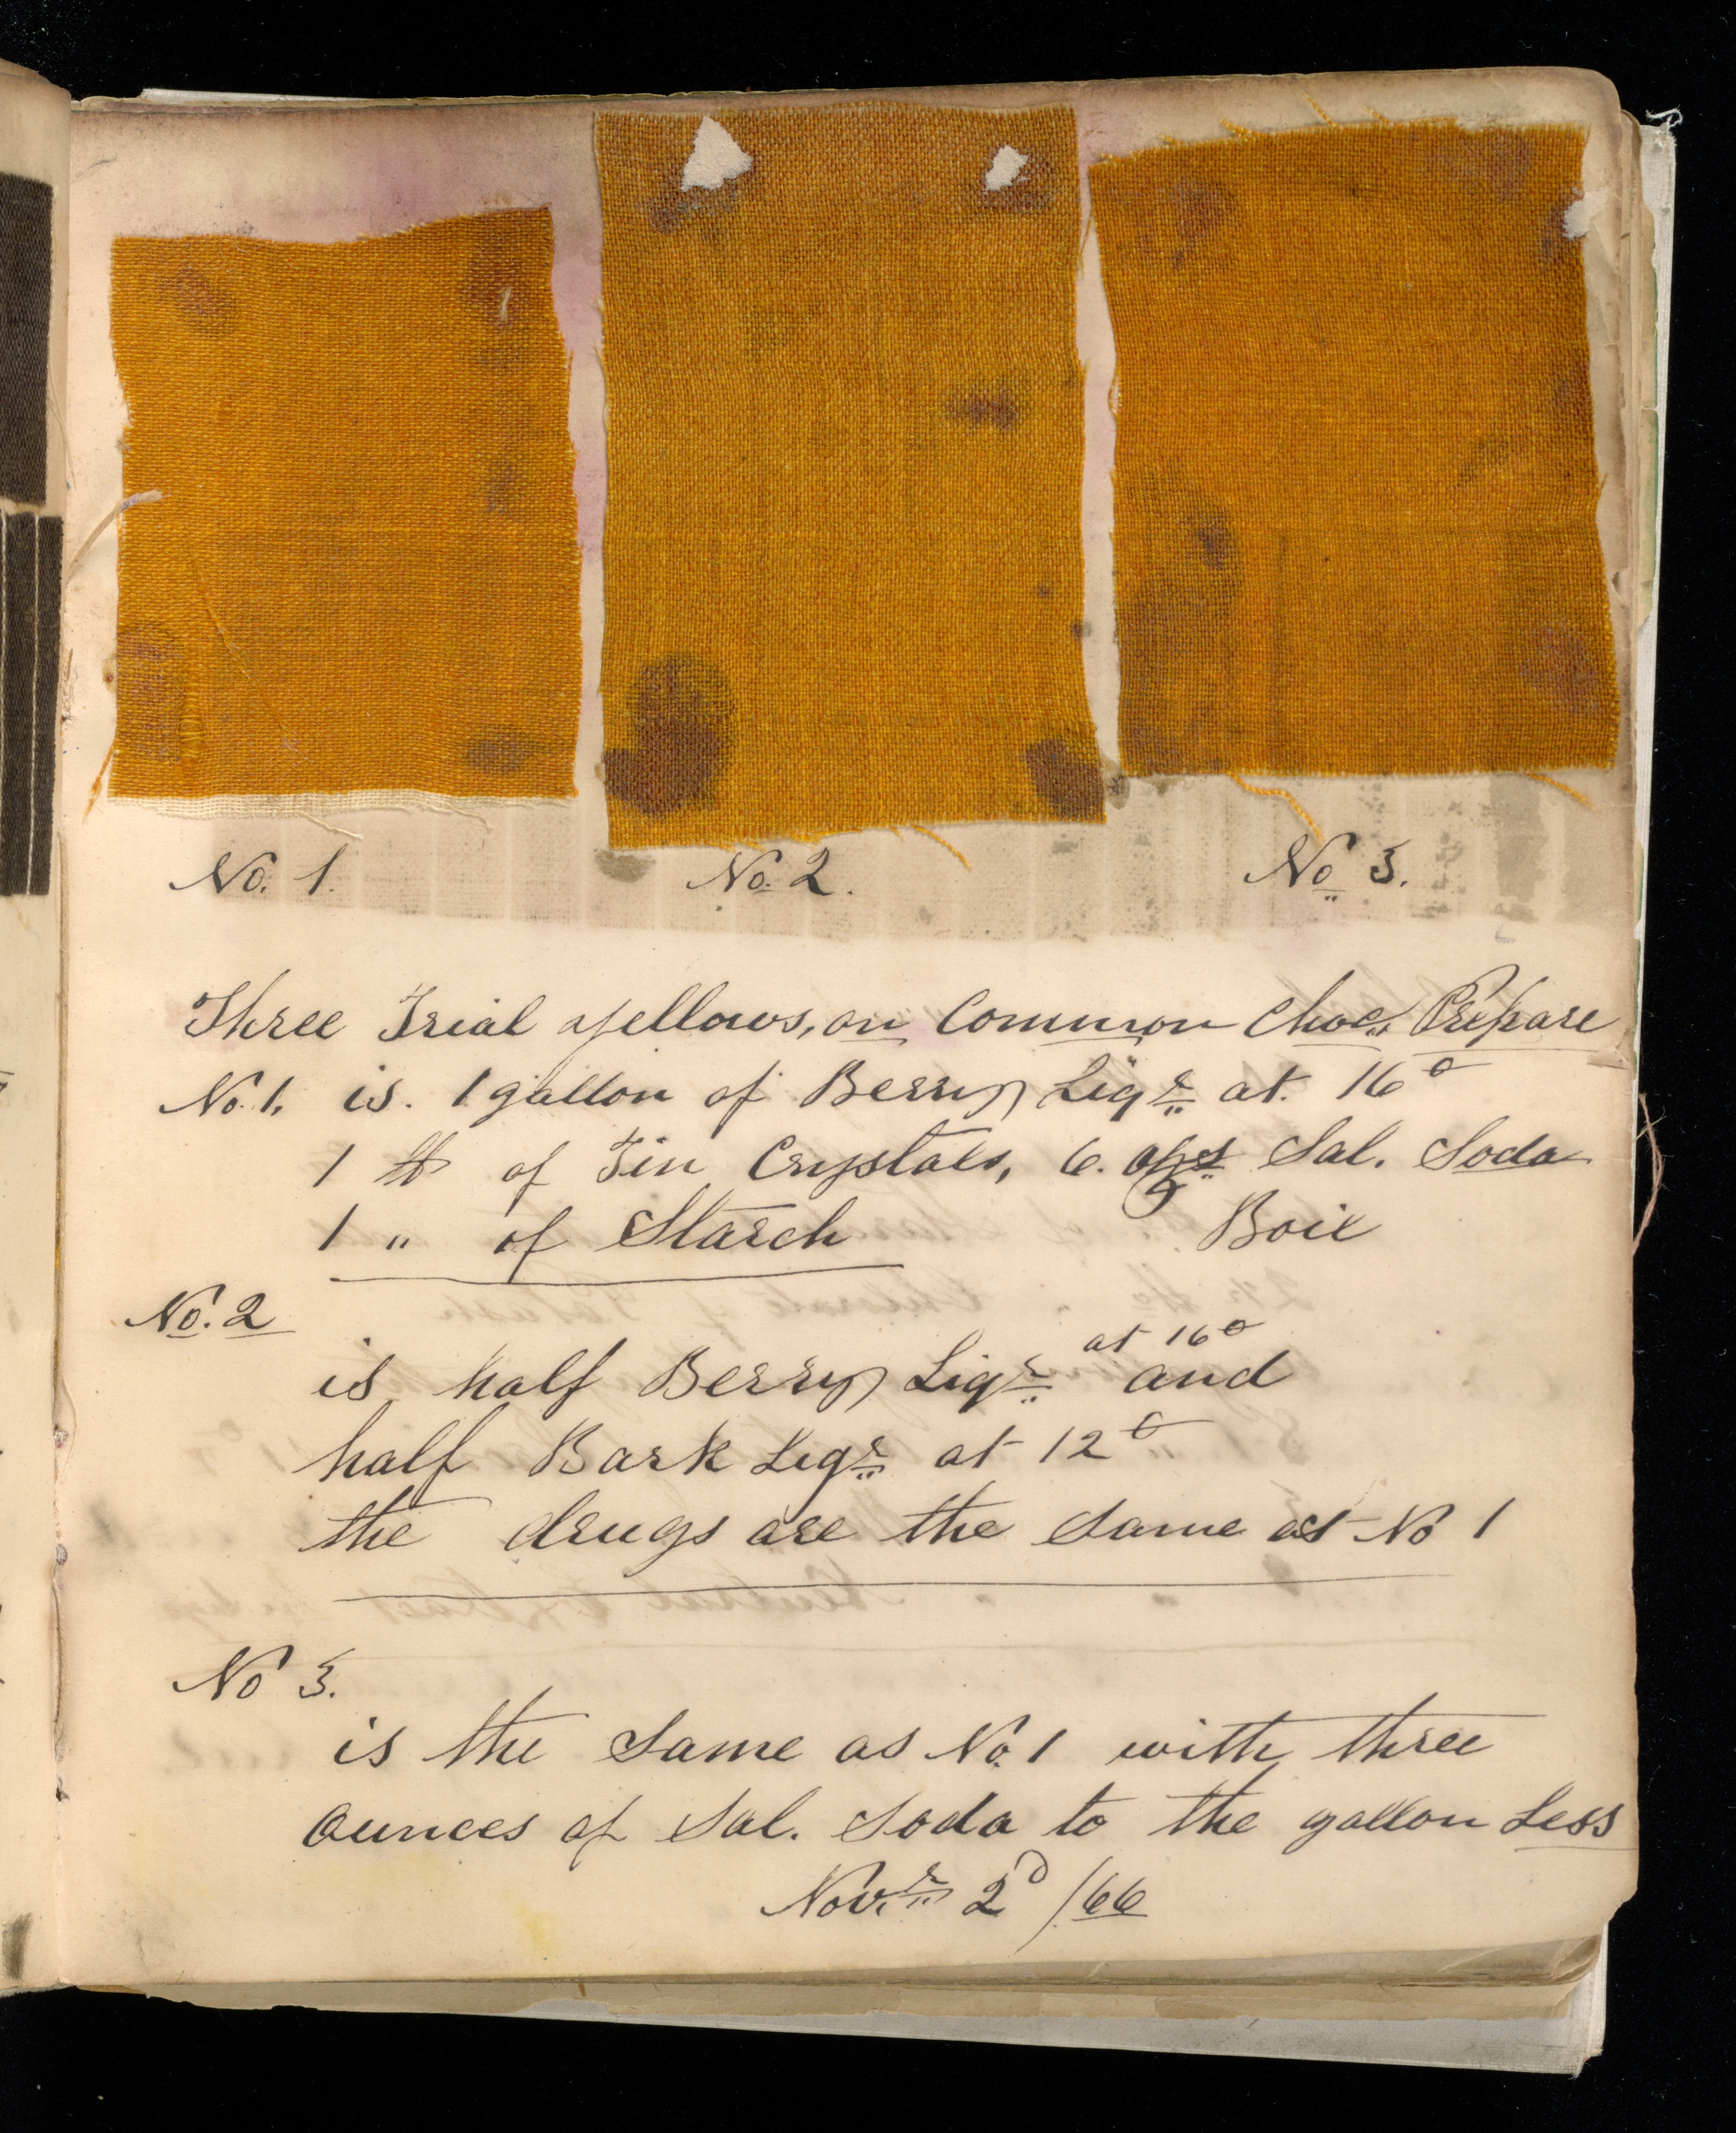 No. 1.
No. 2.
No 3.
Three Trial yellows, on Common Choc. Prepare
No. 1. is. 1 gallon of Berry Liqr at. 16°
1 lb of Tin Crystals, 6. ozs Sal. Soda
1 " of Starch Boil
No. 2
at 16°
is half Berry Liqr and
half Bark Liqr at 12°
the drugs are the same as No 1
No 3.
is the same as No. 1 with three
ounces of Sal. Soda to the gallon Less
Nov.r 2d /66